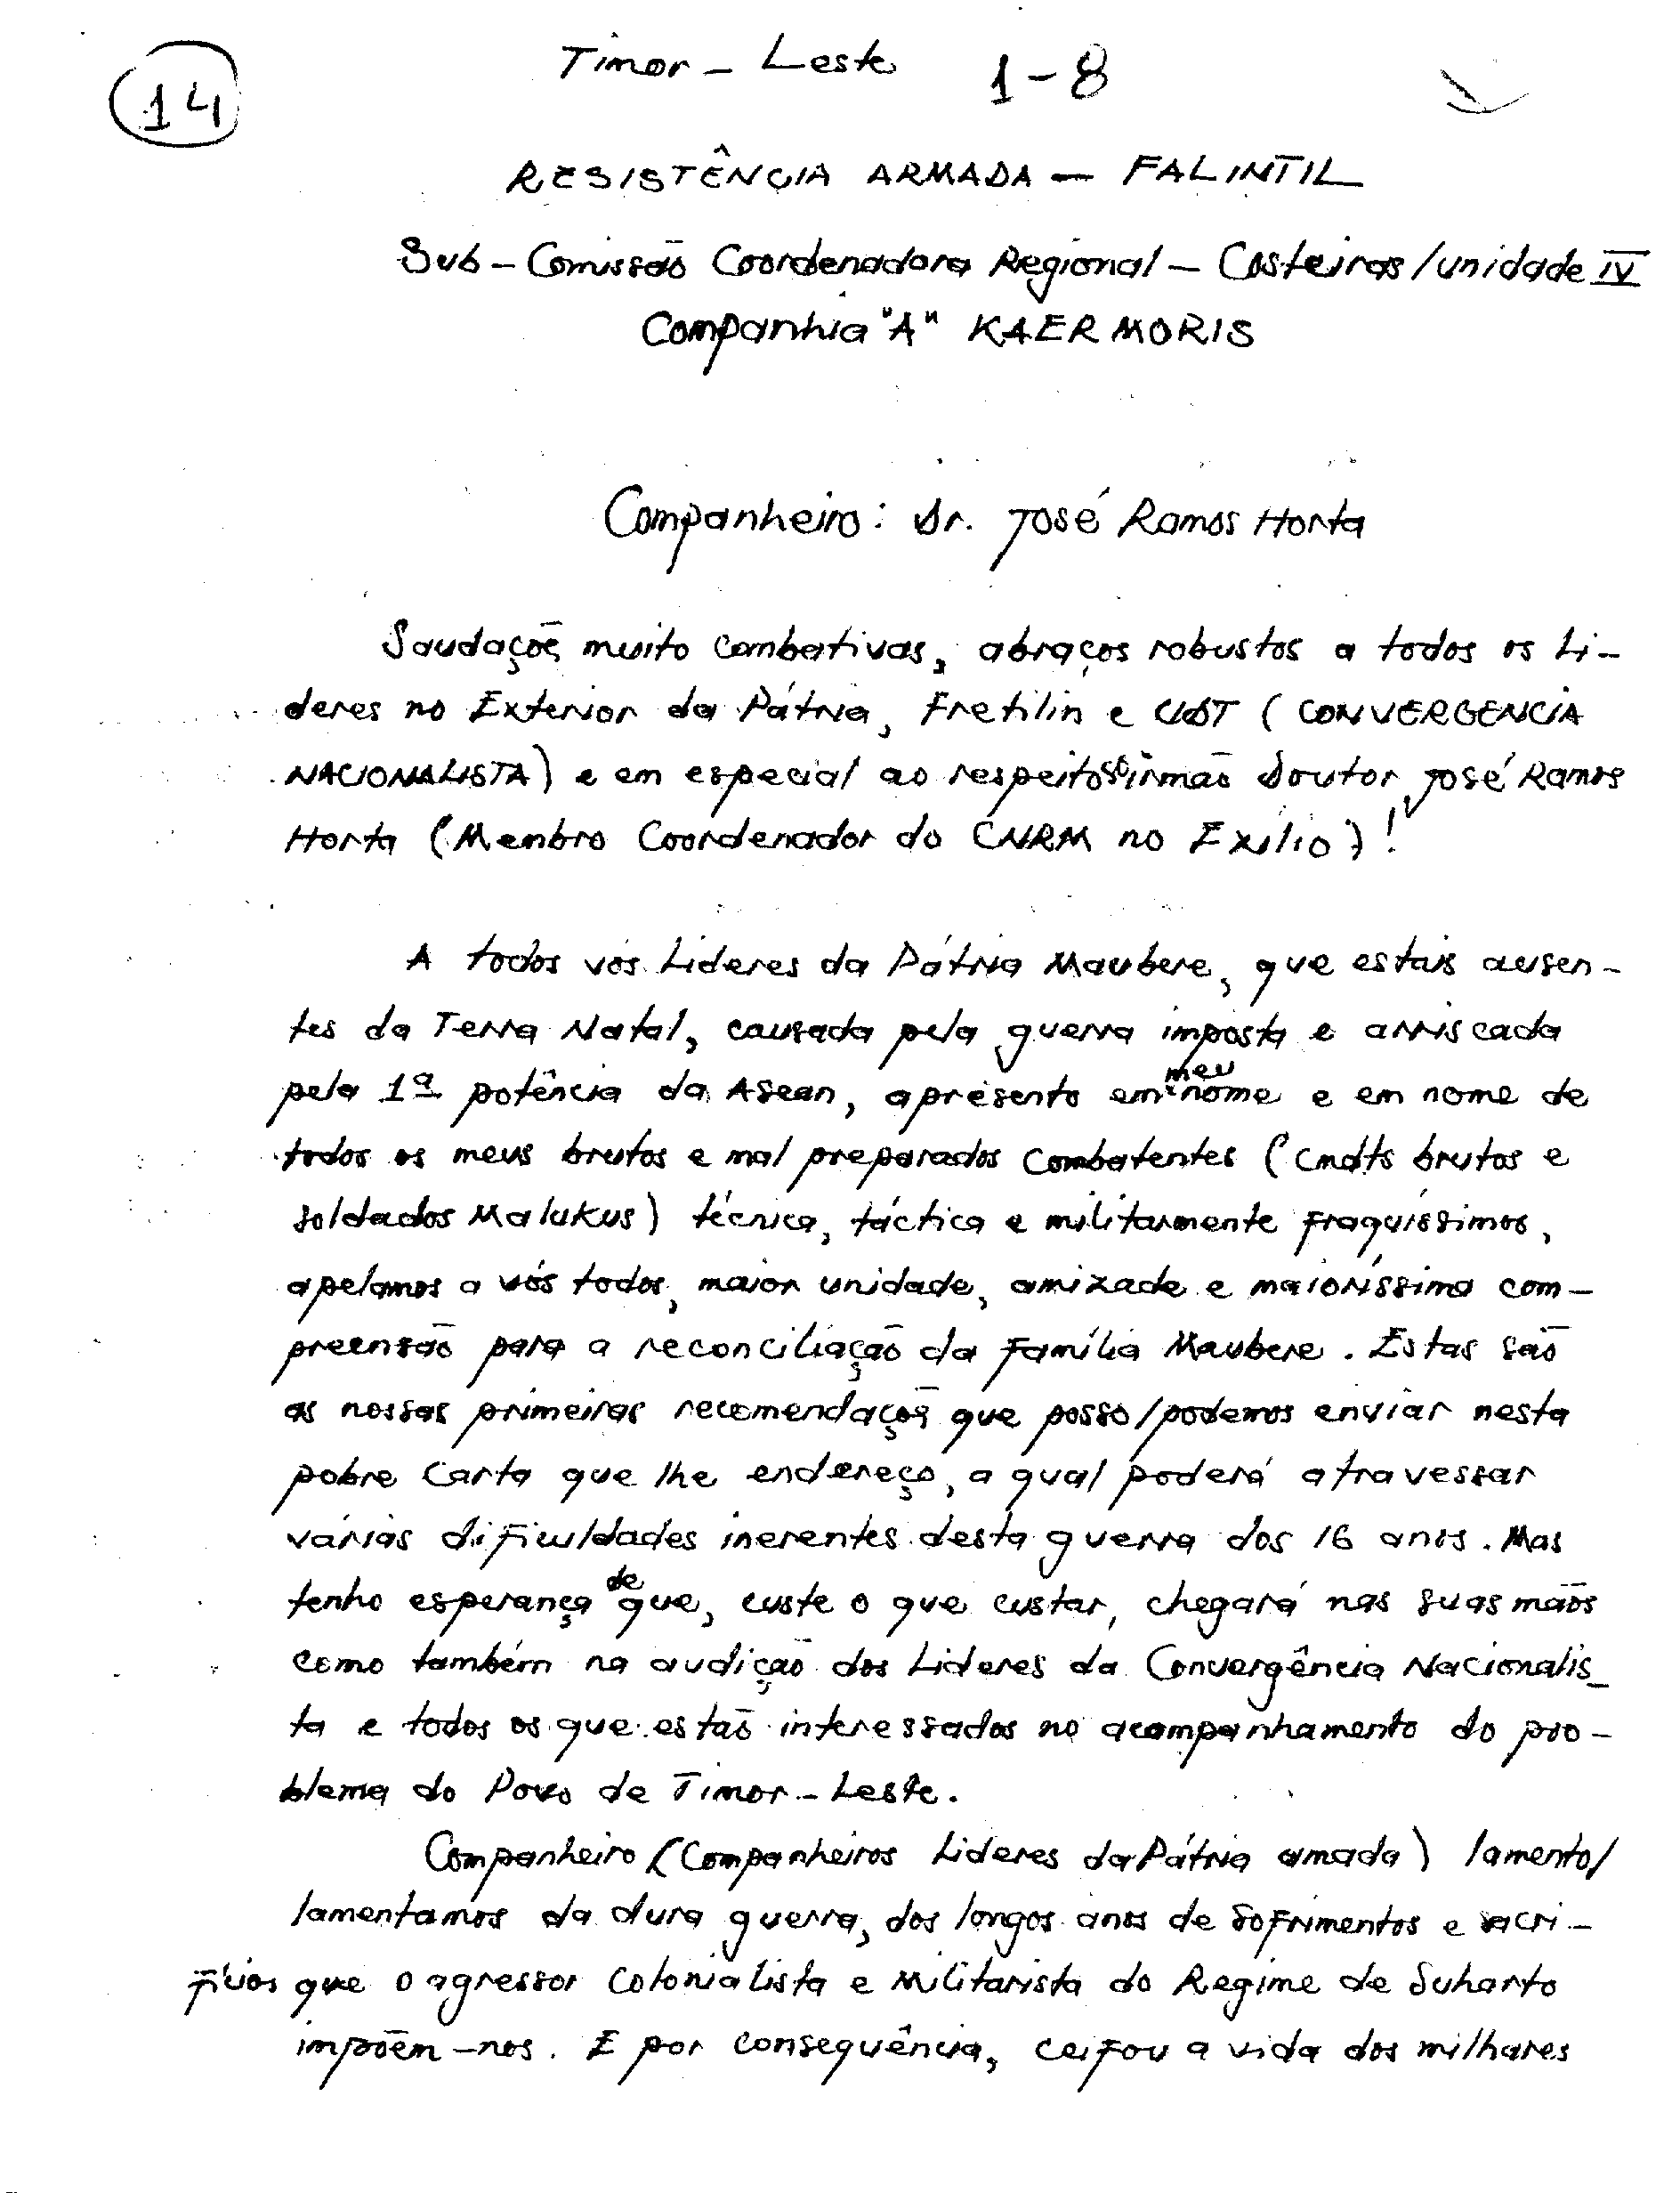 14
Timor - Leste 1-8
RESISTÊNCIA ARMADA - FALINTIL
Sub - Comissão Coordenadora Regional - Costeiras/unidade IV
Companhia "A" KAER MORIS
Companheiro: Dr. José Ramos Horta
Saudaçoẽs muito combativas, abraços robustos a todos os Li-
deres no Exterior da Pátria, Fretilin e UDT (CONVERGENCIA
NACIONALISTA) e em especial ao respeitoso irmão Doutor, José Ramos
Horta (Membro Coordenador do CNRM no Exílio)!
A todos vós Lideres da Pátria Maubere, que estais ausen-
tes da Terra Natal, causada pela guerra imposta e arriscada
pela 1ª potência da Asean, apresento em meu nome e em nome de
todos os meus brutos e mal preparados combatentes (Cmdts brutos e
soldados Malukus) técnica, táctica e militarmente fraquíssimos,
apelamos a vós todos, maior unidade, amizade e maioríssima com-
preensão para a reconciliação da família Maubere. Estas são
as nossas primeiras recomendaçoẽs que posso/podemos enviar nesta
pobre Carta que lhe endereço, a qual poderá atravessar
várias dificuldades inerentes desta guerra dos 16 anos. Mas
tenho esperança de que, custe o que custar, chegará nas suas mãos
como também na audição dos Lideres da Convergência Nacionalis-
ta e todos os que estão interessados no acompanhamento do pro-
blema do Povo de Timor-Leste.
Companheiro (Companheiros Lideres da Pátria amada) lamento/
lamentamos da dura guerra, dos longos anos de sofrimentos e sacri-
fícios que o agressor colonialista e Militarista do Regime de Suharto
impõem-nos. E por consequência, ceifou a vida dos milhares